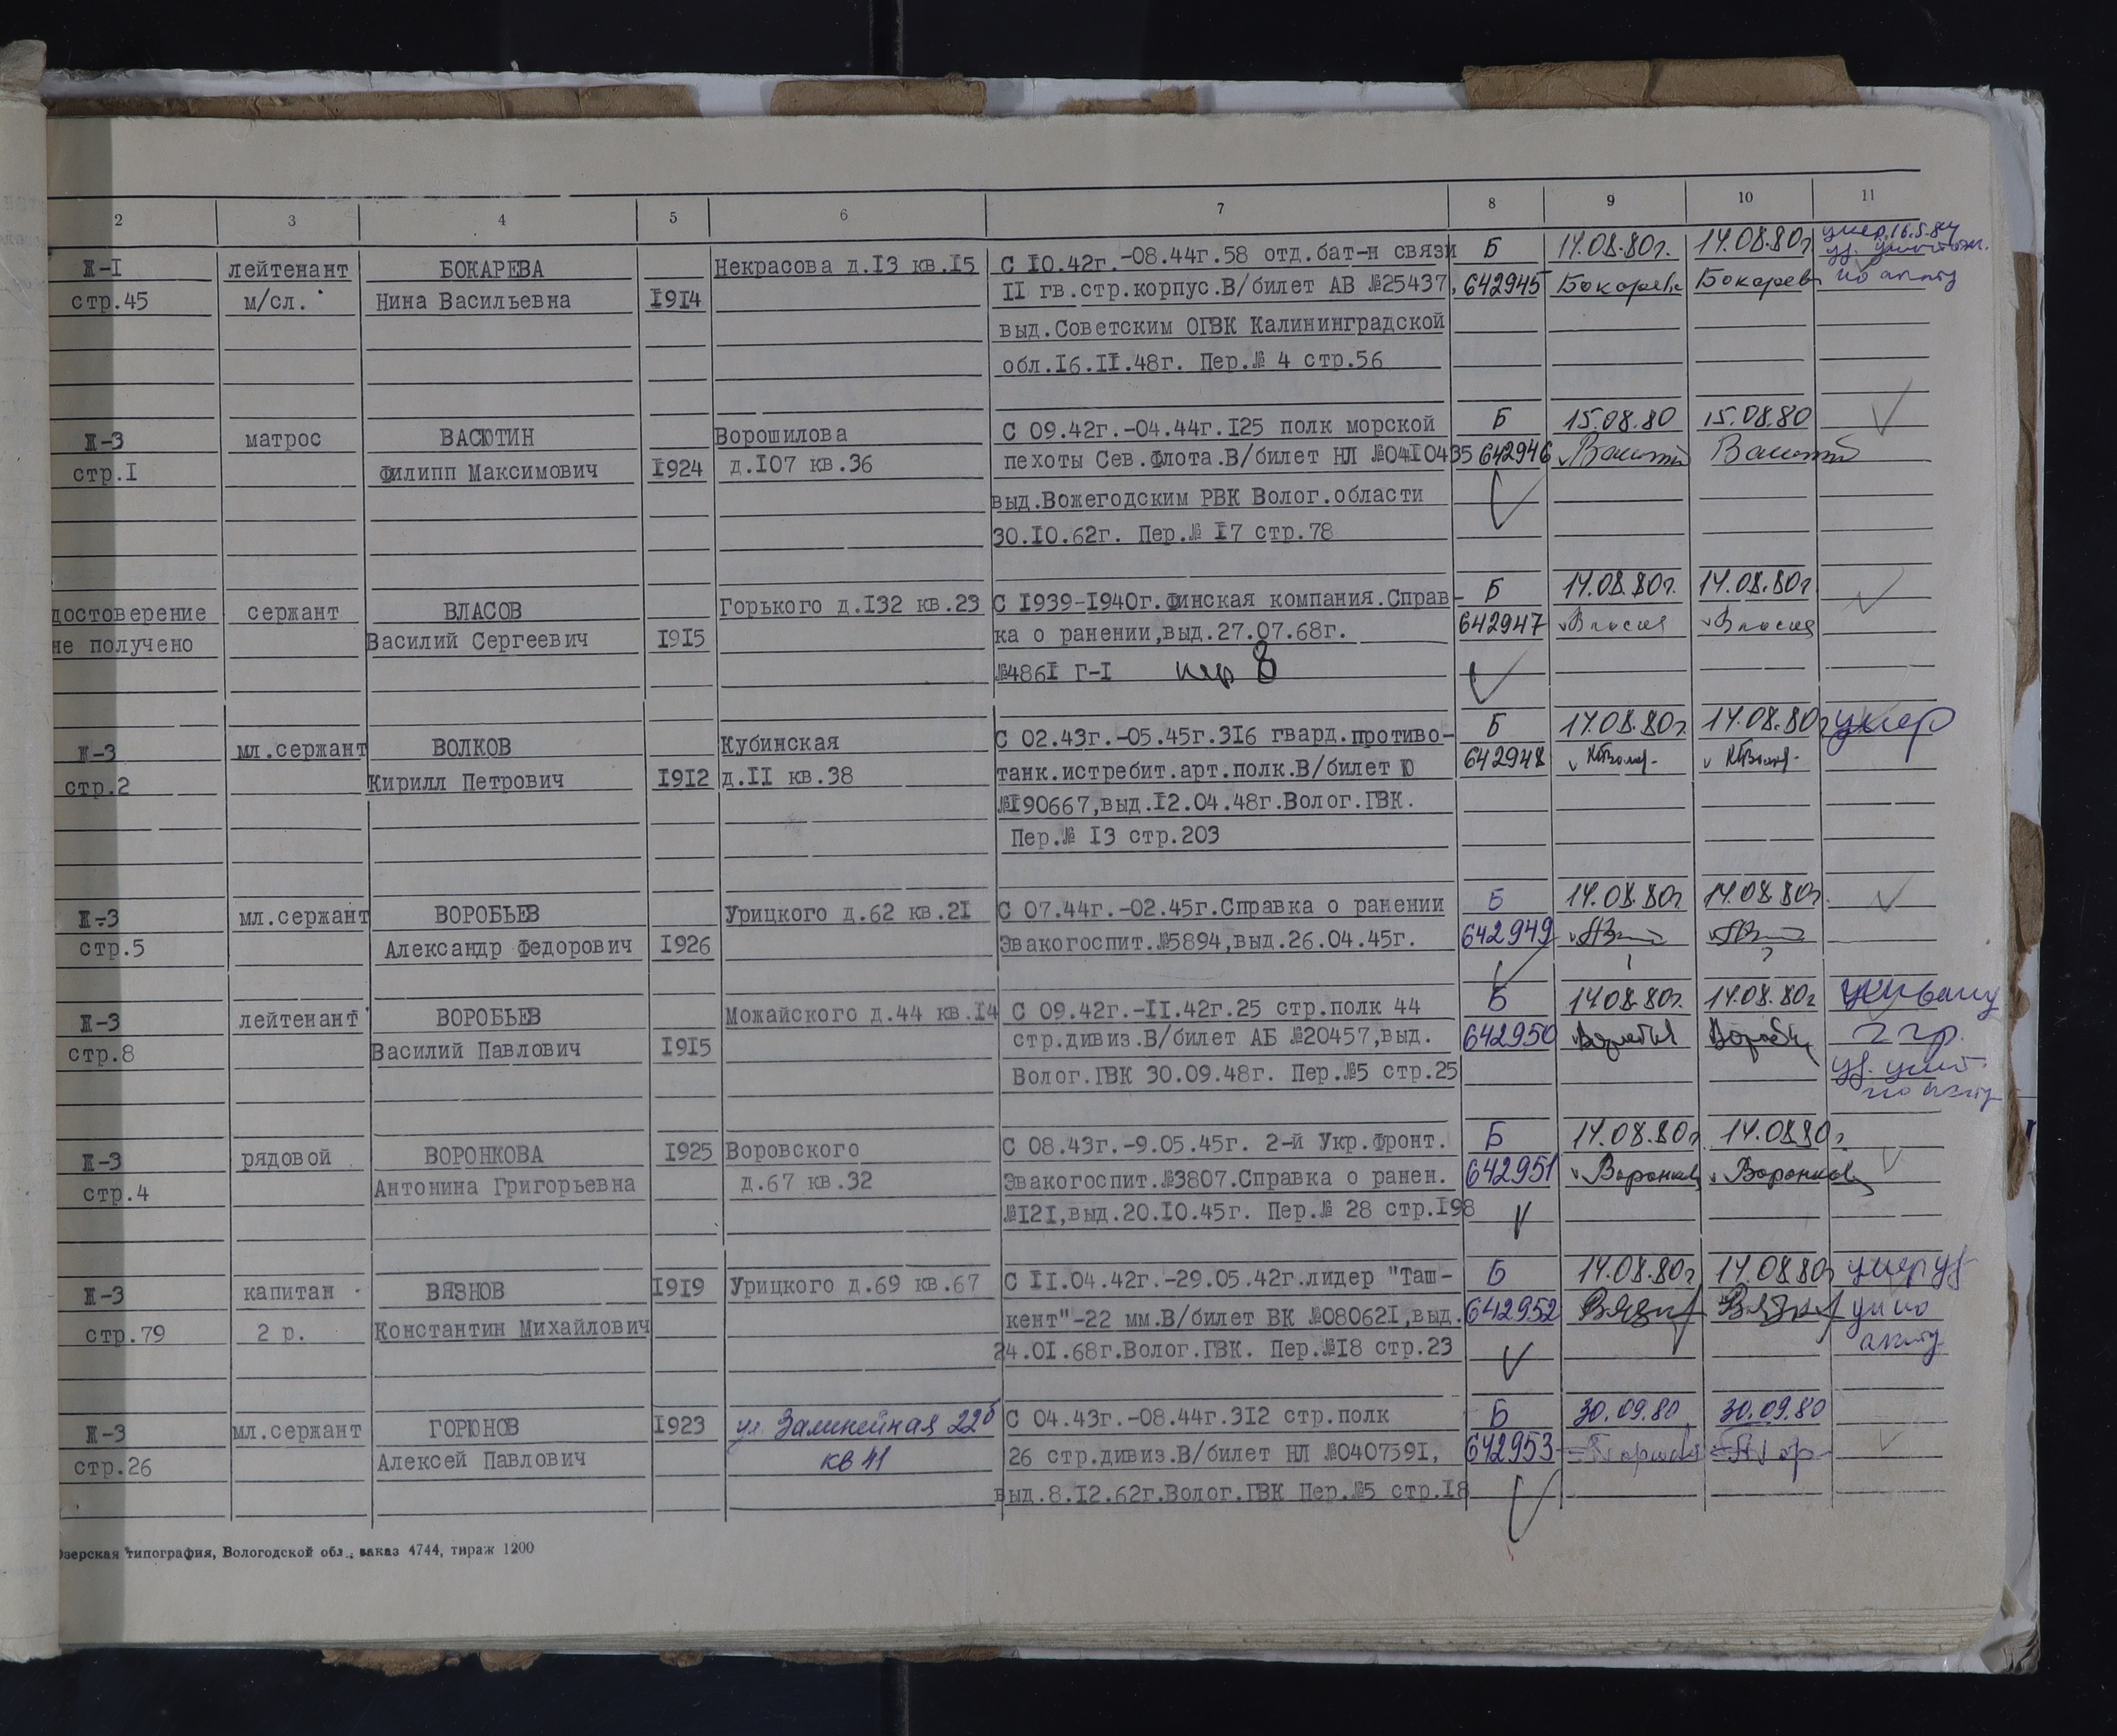 2 3 4 5 6 7 8 9 10 11
Ж-I лейтенант БОКАРЕВА Некрасова д.I3 кв.I5 С I0.42г.-08.44г.58 отд.бат-н связи Б 14.08.80г. 14.08.80г умер.16.5.84
стр.45 м/сл. Нина Васильевна I9I4 II гв.стр.корпус.В/билет АВ №25437, 642945 Бокарева Бокарев по акту
выд.Советским ОГВК Калининградской
обл.I6.II.48г. Пер.№ 4 стр.56
Ж-3 матрос ВАСЮТИН Ворошилова С 09.42г.-04.44г.I25 полк морской Б 15.08.80 15.08.80
стр.I Филипп Максимович I924 д.I07 кв.36 пехоты Сев.Флота.В/билет НЛ №04I0435 642946
выд.Вожегодским РВК Волог.области
30.I0.62г. Пер.№ I7 стр.78
достоверение сержант ВЛАСОВ Горького д.I32 кв.23 С I939-I940г.Финская компания.Справ- Б 14.08.80г. 14.08.80г
не получено Василий Сергеевич I9I5 ка о ранении,выд.27.07.68г. 642947 Власов Власов
№486I Г-I пер 8
Ж-3 мл.сержант ВОЛКОВ Кубинская С 02.43г.-05.45г.3I6 гвард.противо- Б 14.08.80г 14.08.80г умер
стр.2 Кирилл Петрович I9I2 д.II кв.38 танк.истребит.арт.полк.В/билет Ю 642948
№I90667,выд.I2.04.48г.Волог.ГВК.
Пер.№ I3 стр.203
Ж-3 мл.сержант ВОРОБЬЕВ Урицкого д.62 кв.2I С 07.44г.-02.45г.Справка о ранении Б 14.08.80г 14.08.80г.
стр.5 Александр Федорович I926 Эвакогоспит.№5894,выд.26.04.45г. 642949
Ж-3 лейтенант ВОРОБЬЕВ Можайского д.44 кв.I4 С 09.42г.-II.42г.25 стр.полк 44 Б 14.08.80г. 14.08.80г
стр.8 Василий Павлович I9I5 стр.дивиз.В/билет АБ №20457,выд. 642950 2 гр.
Волог.ГВК 30.09.48г. Пер.№5 стр.25 уд. унич.
по акту
Ж-3 рядовой ВОРОНКОВА I925 Воровского С 08.43г.-9.05.45г. 2-й Укр.Фронт. Б 14.08.80г 14.08.80г
стр.4 Антонина Григорьевна д.67 кв.32 Эвакогоспит.№3807.Справка о ранен. 642951 Воронков Воронков
№I2I,выд.20.I0.45г. Пер.№ 28 стр.I98
Ж-3 капитан ВЯЗНОВ I9I9 Урицкого д.69 кв.67 С II.04.42г.-29.05.42г.лидер "Таш- Б 14.08.80г 14.08.80г умер уд
стр.79 2 р. Константин Михайлович кент"-22 мм.В/билет ВК №08062I,выд. 642952 Вязн Вязн ун по
24.0I.68г.Волог.ГВК. Пер.№I8 стр.23 акту
Ж-3 мл.сержант ГОРЮНОВ I923 ул. Залинейная 22б С 04.43г.-08.44г.3I2 стр.полк Б 30.09.80 30.09.80
стр.26 Алексей Павлович кв 41 26 стр.дивиз.В/билет НЛ №040759I, 642953
выд.8.I2.62г.Волог.ГВК Пер.№5 стр.I8
Озерская типография, Вологодской обл., заказ 4744, тираж 1200